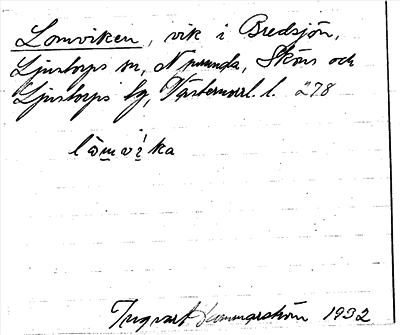 Lomviken, vik i Bredsjön,
Ljustorps sn, Njurunda, Sköns och
Ljustorps tg, Västernorrl. l. 278
lòmvìka
Ingvart 1932